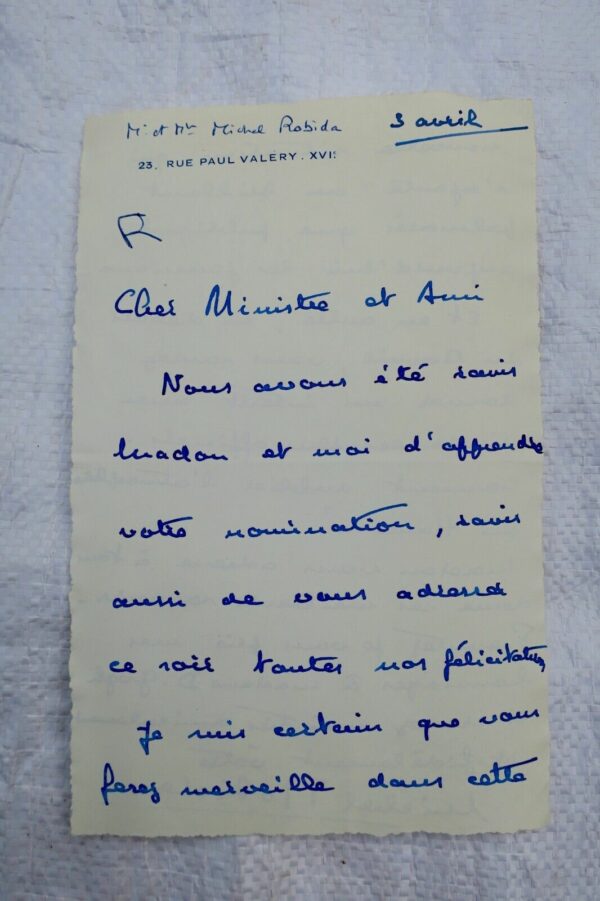 Mr et Me Michel Robida 3 avril
23. RUE PAUL VALERY. XVI:
R
Cher Ministre et Ami
Nous avons été ravis
Madon et moi d'apprendre
votre nomination, ravis
aussi de vous adresser
ce soir toutes nos félicitations
Je suis certain que vous
ferez merveille dans cette